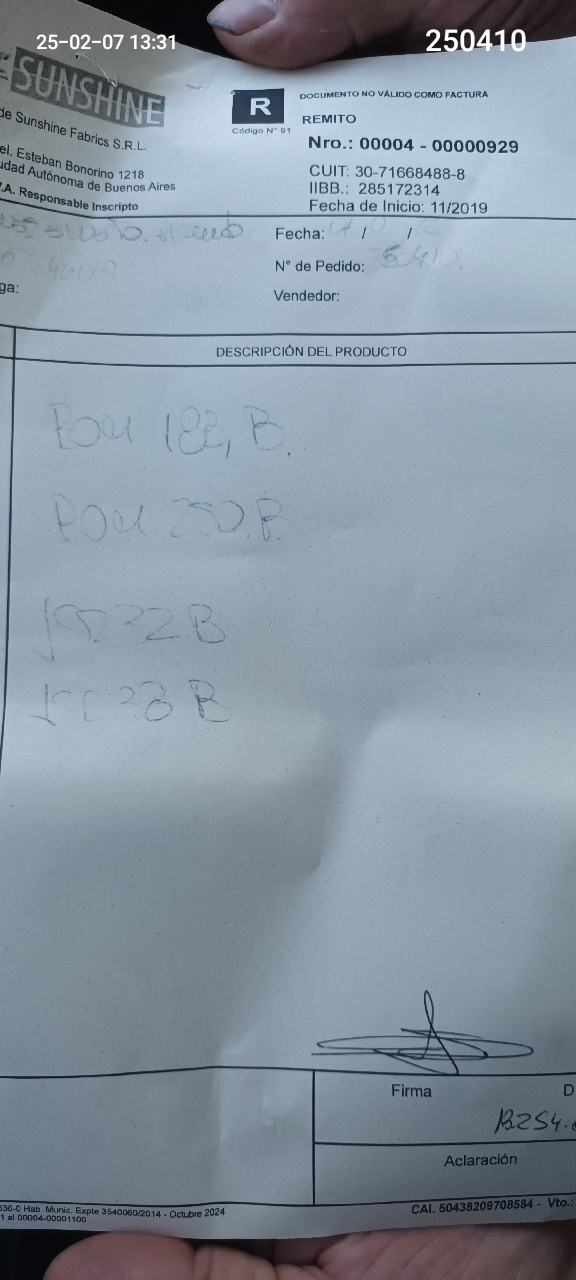 25-02-07 13:31
250410
SUNSHINE
de Sunshine Fabrics S.R.L.
el. Esteban Bonorino 1218
udad Autónoma de Buenos Aires
.A. Responsable Inscripto
R
Código N° 91
DOCUMENTO NO VÁLIDO COMO FACTURA
REMITO
Nro.: 00004 - 00000929
CUIT: 30-71668488-8
IIBB.: 285172314
Fecha de Inicio: 11/2019
Fecha: / /
N° de Pedido:
Vendedor:
ga:
DESCRIPCIÓN DEL PRODUCTO
183, B.
250. B
22 B
B
Firma
D
Aclaración
836-0 Hab. Munic. Expte 3540060/2014 - Octubre 2024
1 al 00004-00001100
CAI. 50438209708584 - Vto.: